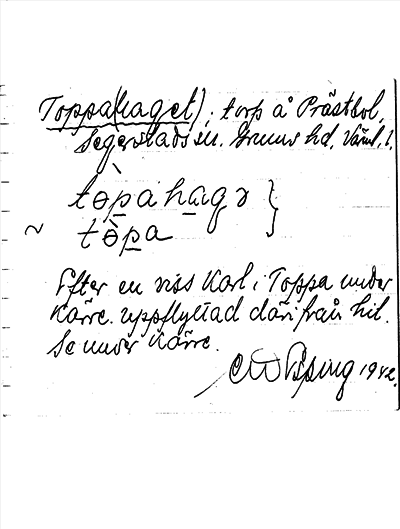 Toppa(haget), torp å Prästbol,
Segerstads sn. Grums hd, Värml. l.
tòpahagə }
~ tòpa
Efter en viss Karl i Toppa under
Kärre. uppflyttad därifrån hit.
Se under Kärre.
1942.